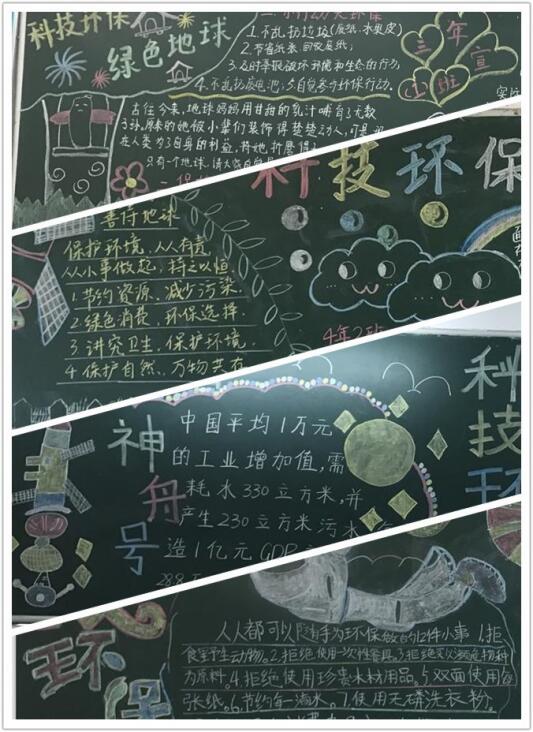 科技环保
绿色地球
1.不乱扔垃圾(废纸、水果皮)
2.节省纸张 回收废纸;
3.及时举报破坏环境和生态的行为;
4.不乱扔废电池;5.自觉参与环保行动.
三年
一班
宣
古往今来,地球妈妈用甘甜的乳汁哺育了无数
子孙.原来的她被小辈们装饰得楚楚动人,可是
在人类为了自身的利益,将她折磨得
只有一个地球
科技环保
善待地球
保护环境,人人有责
从小事做起,持之以恒
1.节约资源、减少污染
2.绿色消费、环保选择.
3.讲究卫生、保护环境.
4.保护自然、万物共存
4年2班
科技环
神舟号
中国平均1万元
的工业增加值,需
耗水330立方米,并
产生230立方米污水
造1亿元GDP
288
环保
人人都可以随手为环保做的12件小事 1.拒
食野生动物。2.拒绝使用一次性餐具。3.拒绝买
为原料。4.拒绝使用珍贵木材用品。5.双面使用
张纸。6.节约每一滴水。7.使用无磷洗衣粉。